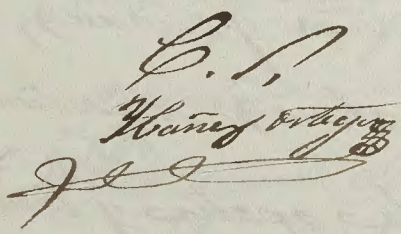 C. S.
Ybañez Ortega